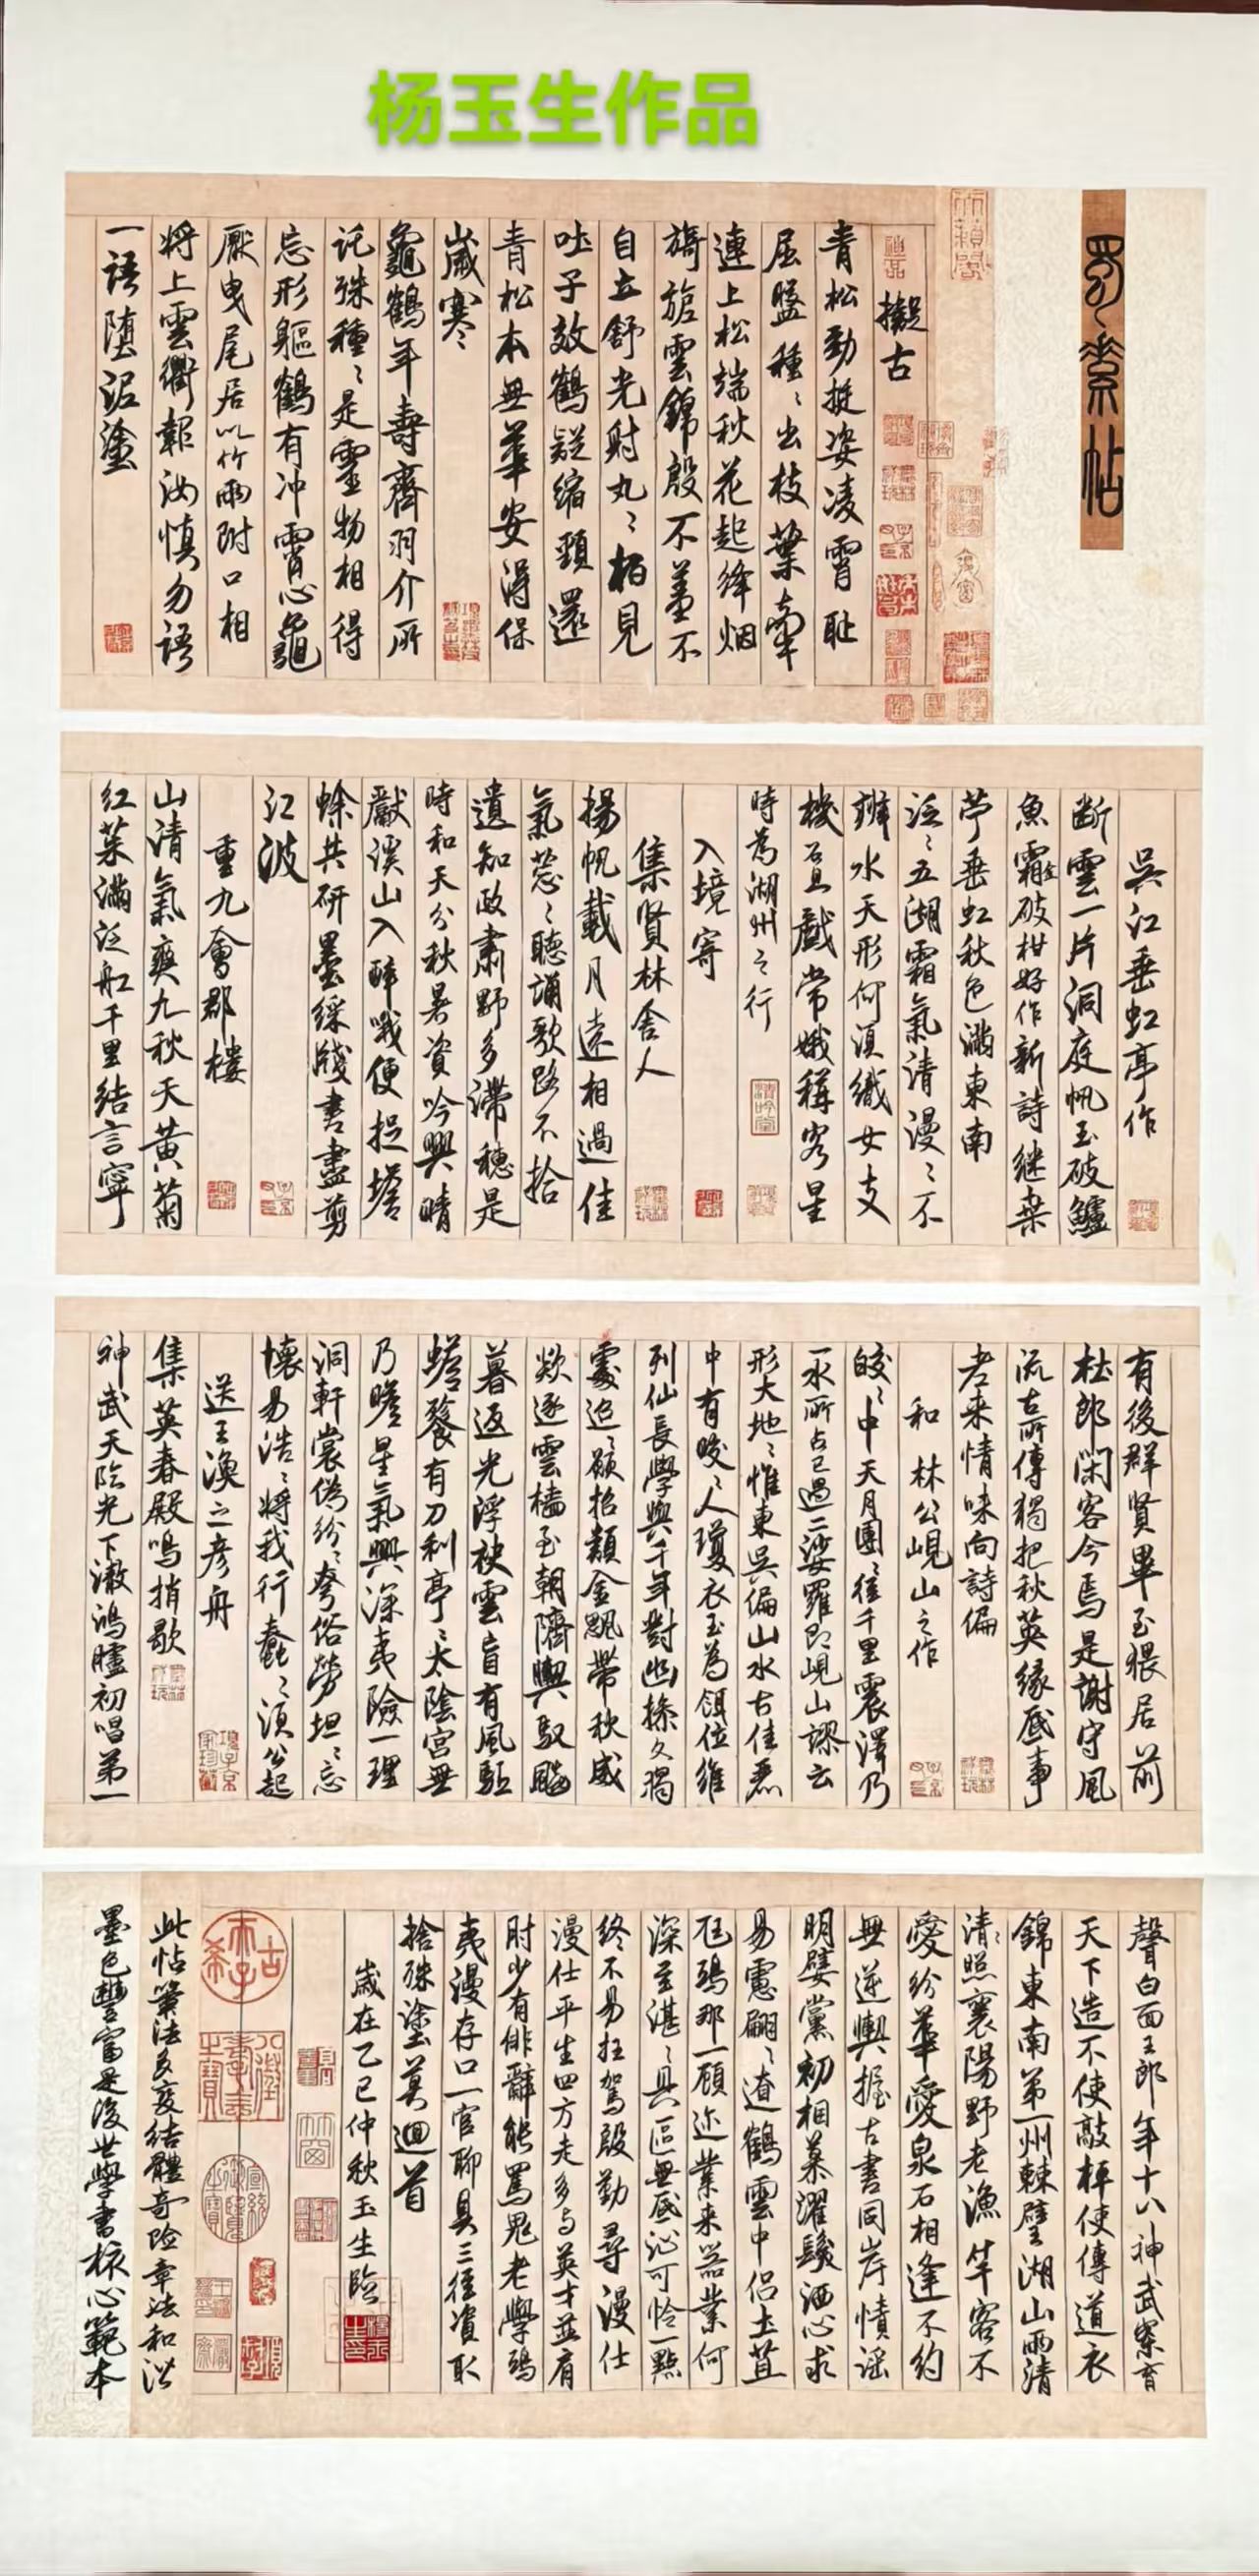 杨玉生作品
蜀素帖
擬古
青松勁挺姿凌霄耻
屈盤種々出枝葉牽
連上松端秋花起絳烟
旖旎雲錦殷不羞不
自立舒光射丸々柏見
吐子效鶴疑縮頸還
青松本無華安得保
歲寒
龜鶴年壽齊羽介所
託殊種々是靈物相得
忘形軀鶴有冲霄心龜
厭曳尾居以竹兩附口相
將上雲衢報汝慎勿語
一語墮泥塗
吳江垂虹亭作
断雲一片洞庭帆玉破鱸
魚霜金破柑好作新詩継桒
苧垂虹秋色滿東南
泛々五湖霜氣清漫々不
辨水天形何須織女支
機石且戲常娥稱客星
時為湖州之行
入境寄
集賢林舍人
揚帆載月遠相過佳
氣蔥々聽誦歌路不拾
遺知政肅野多滯穗是
時和天分秋暑資吟興晴
獻溪山入醉哦便捉蟾
蜍共研墨綵牋書盡剪
江波
重九會郡樓
山清氣爽九秋天黃菊
紅茱滿泛舡千里結言寧
有後群賢畢至猥居前
杜郎閑客今焉是謝守風
流古所傳獨把秋英緣底事
老来情味向詩偏
和林公峴山之作
皎々中天月團々徑千里震澤乃
一水所占已過二娑羅即峴山謬云
形大地々惟東吳偏山水古佳麗
中有皎々人瓊衣玉為餌位維
列仙長學與千年對幽操久獨
處迢々願招類金飈帶秋威
欻逐雲檣至朝隮輿馭飈
暮返光浮袂雲盲有風驅
蟾餮有刀利亭々太陰宮無
乃瞻星氣興深夷險一理
洞軒裳偽紛々夸俗勞坦々忘
懷易浩々將我行蠢々須公起
送王渙之彦舟
集英春殿鳴捎歇
神武天臨光下澈鴻臚初唱第一
聲白面王郎年十八神武樂育
天下造不使敲枰使傳道衣
錦東南第一州棘璧湖山兩清
清々照襄陽野老漁竿客不
愛紛華愛泉石相逢不約
無逆輿握古書同岸幘謡
明嬖黨初相慕濯髮洒心求
易慮翩々遼鶴雲中侣土苴
尫鴟那一顧迩業来器業何
深至湛々具區無底沚可怜一點
終不易枉駕殷勤尋漫仕
漫仕平生四方走多与英才並肩
肘少有俳辭能罵鬼老學鴟
夷漫存口一官聊具三徑資取
捨殊塗莫迴首
歲在乙巳仲秋玉生臨
此帖筆法多變結體奇险章法和諧
墨色豐富是後世學書核心範本